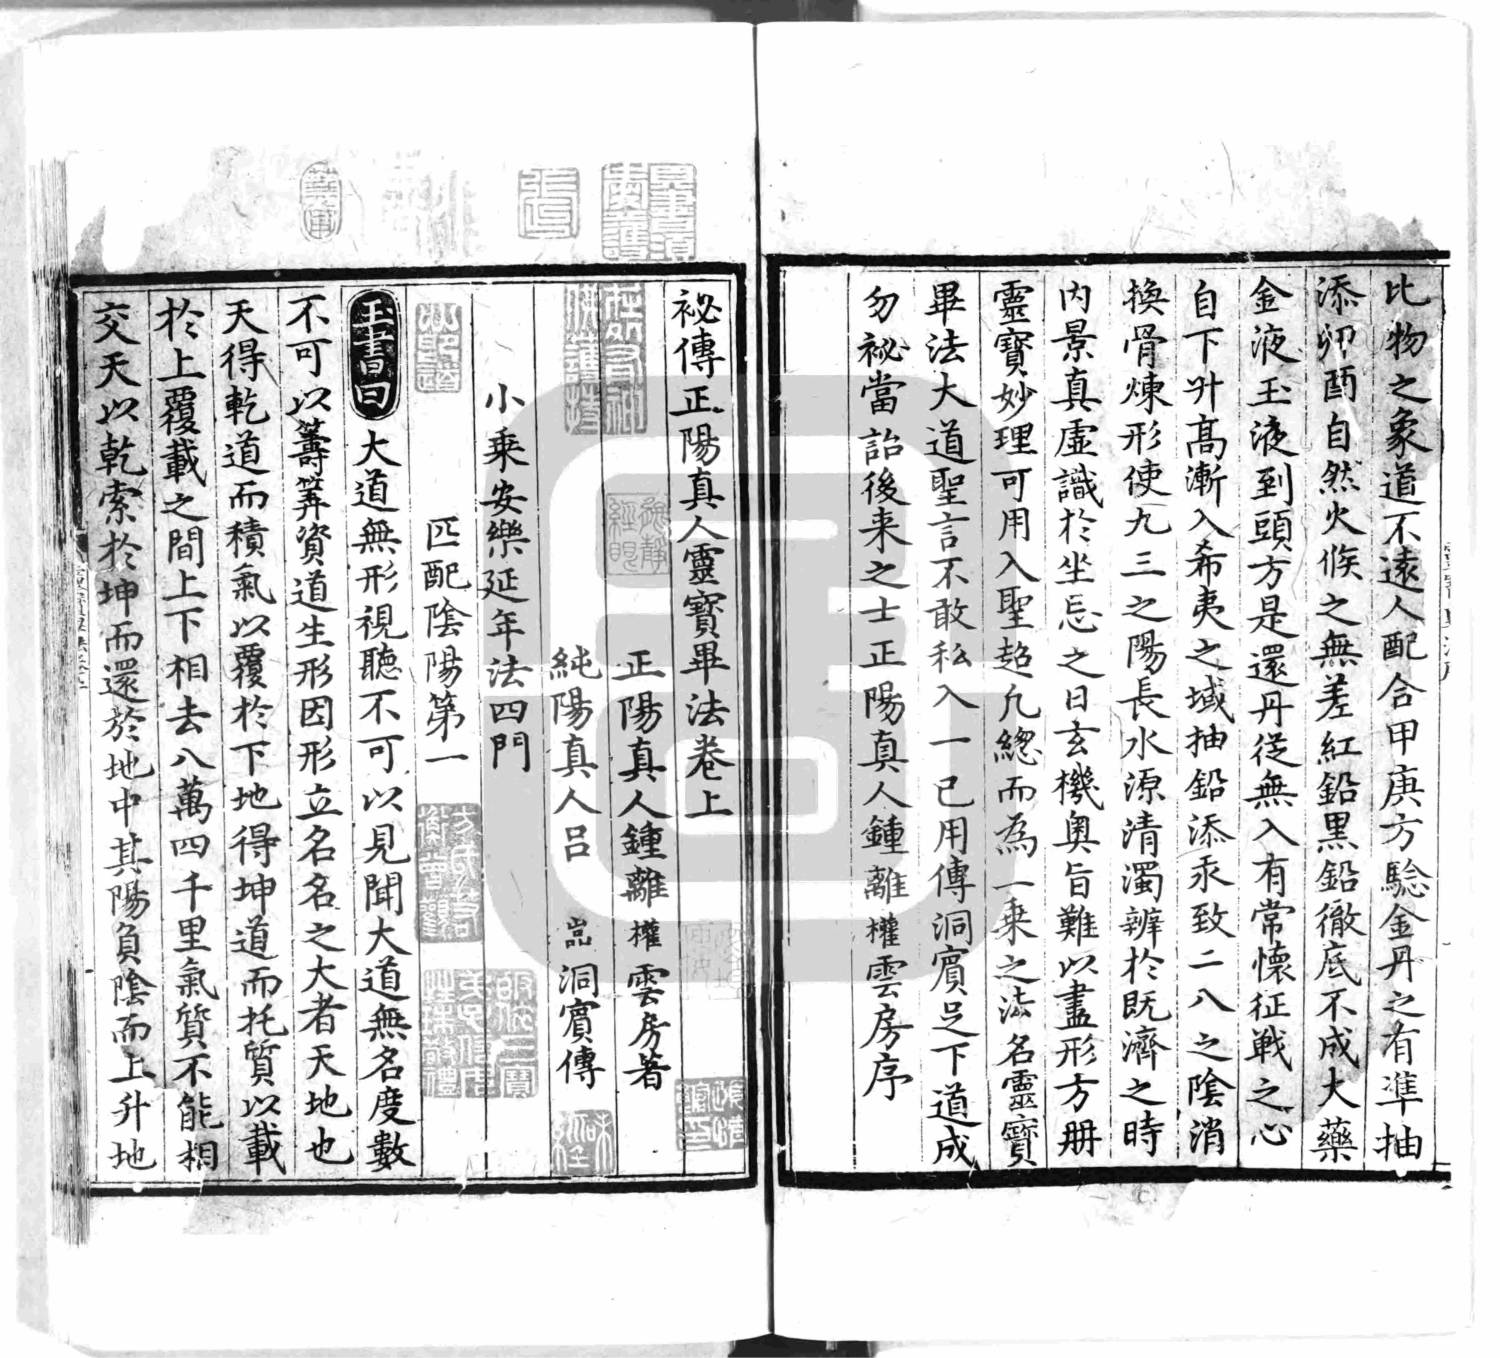 比物之象道不遠人配合甲庚方驗金丹之有準抽
添卯酉自然火𠋫之無差紅鉛黑鉛徹底不成大藥
金液玉液到頭方是還丹從無入有常懷征戰之心
自下升髙漸入希夷之域抽鉛添汞致二八之陰消
換骨煉形使九三之陽長水源清濁辨於既濟之時
内景真虚識於坐忘之日玄機奥旨難以盡形方册
靈寳妙理可用入聖超凡總而為一乗之法名靈寳
畢法大道聖言不敢私入一已用傳洞賔足下道成
勿袐當詒後来之士正陽真人鍾離權雲房序
袐傳正陽真人靈寳畢法卷上
正陽真人鍾離權雲房著
純陽真人吕嵒洞賔傳
小乗安樂延年法四門
匹配陰陽第一
玉書曰大道無形視聽不可以見聞大道無名度數
不可以籌筭資道生形因形立名名之大者天地也
天得乾道而積氣以覆於下地得坤道而托質以載
於上覆載之間上下相去八萬四千里氣質不能相
交天以乾索於坤而還於地中其陽負陰而上升地